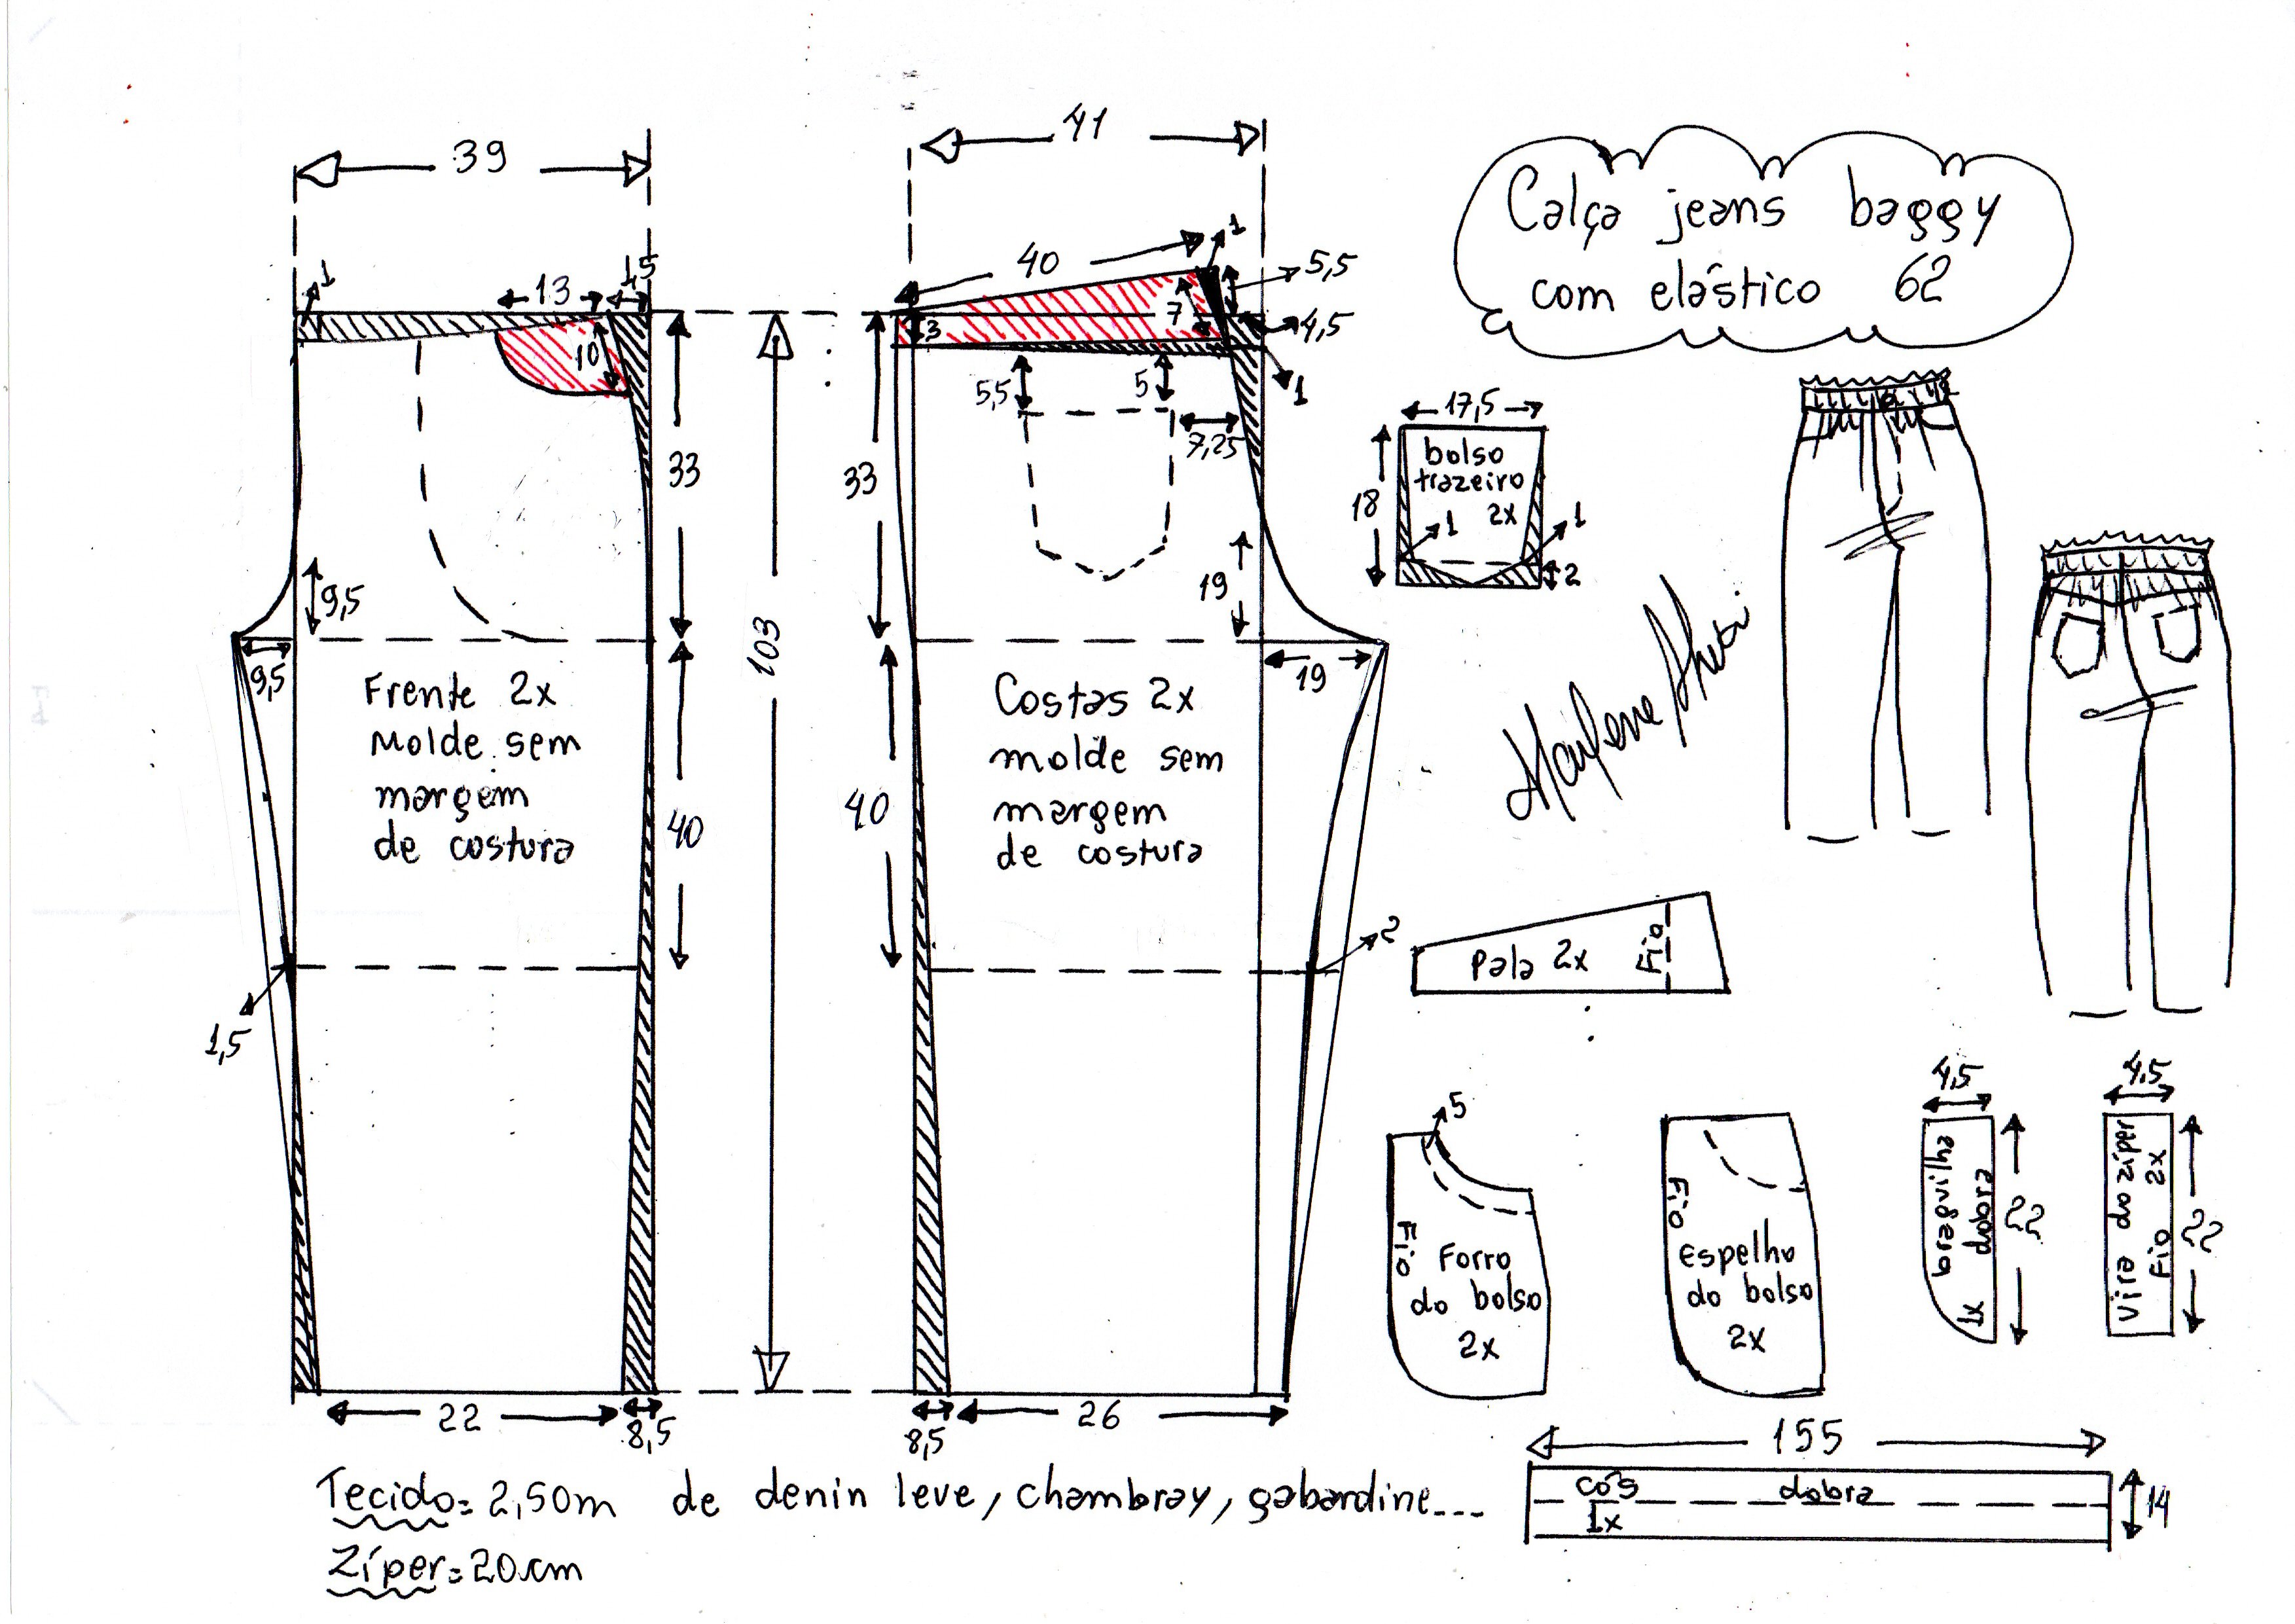 Calça jeans baggy
com elástico 62
39
1
13
1,5
10
33
9,5
9,5
Frente 2x
Molde sem
margem
de costura
40
1,5
22
8,5
103
41
40
1
5,5
7
4,5
3
1
5,5
5
7,25
33
19
19
Costas 2x
molde sem
margem
de costura
40
2
8,5
26
17,5
bolso
trazeiro
2x
18
1
1
2
Marlene
Pala 2x
Fio
5
Fio
Forro
do bolso
2x
Fio
Espelho
do bolso
2x
4,5
braguilha
dobra
1x
22
4,5
Vira do zíper
Fio 2x
22
155
cós dobra
1x
14
Tecido = 2,50m de denin leve, chambray, gabardine...
Zíper = 20cm